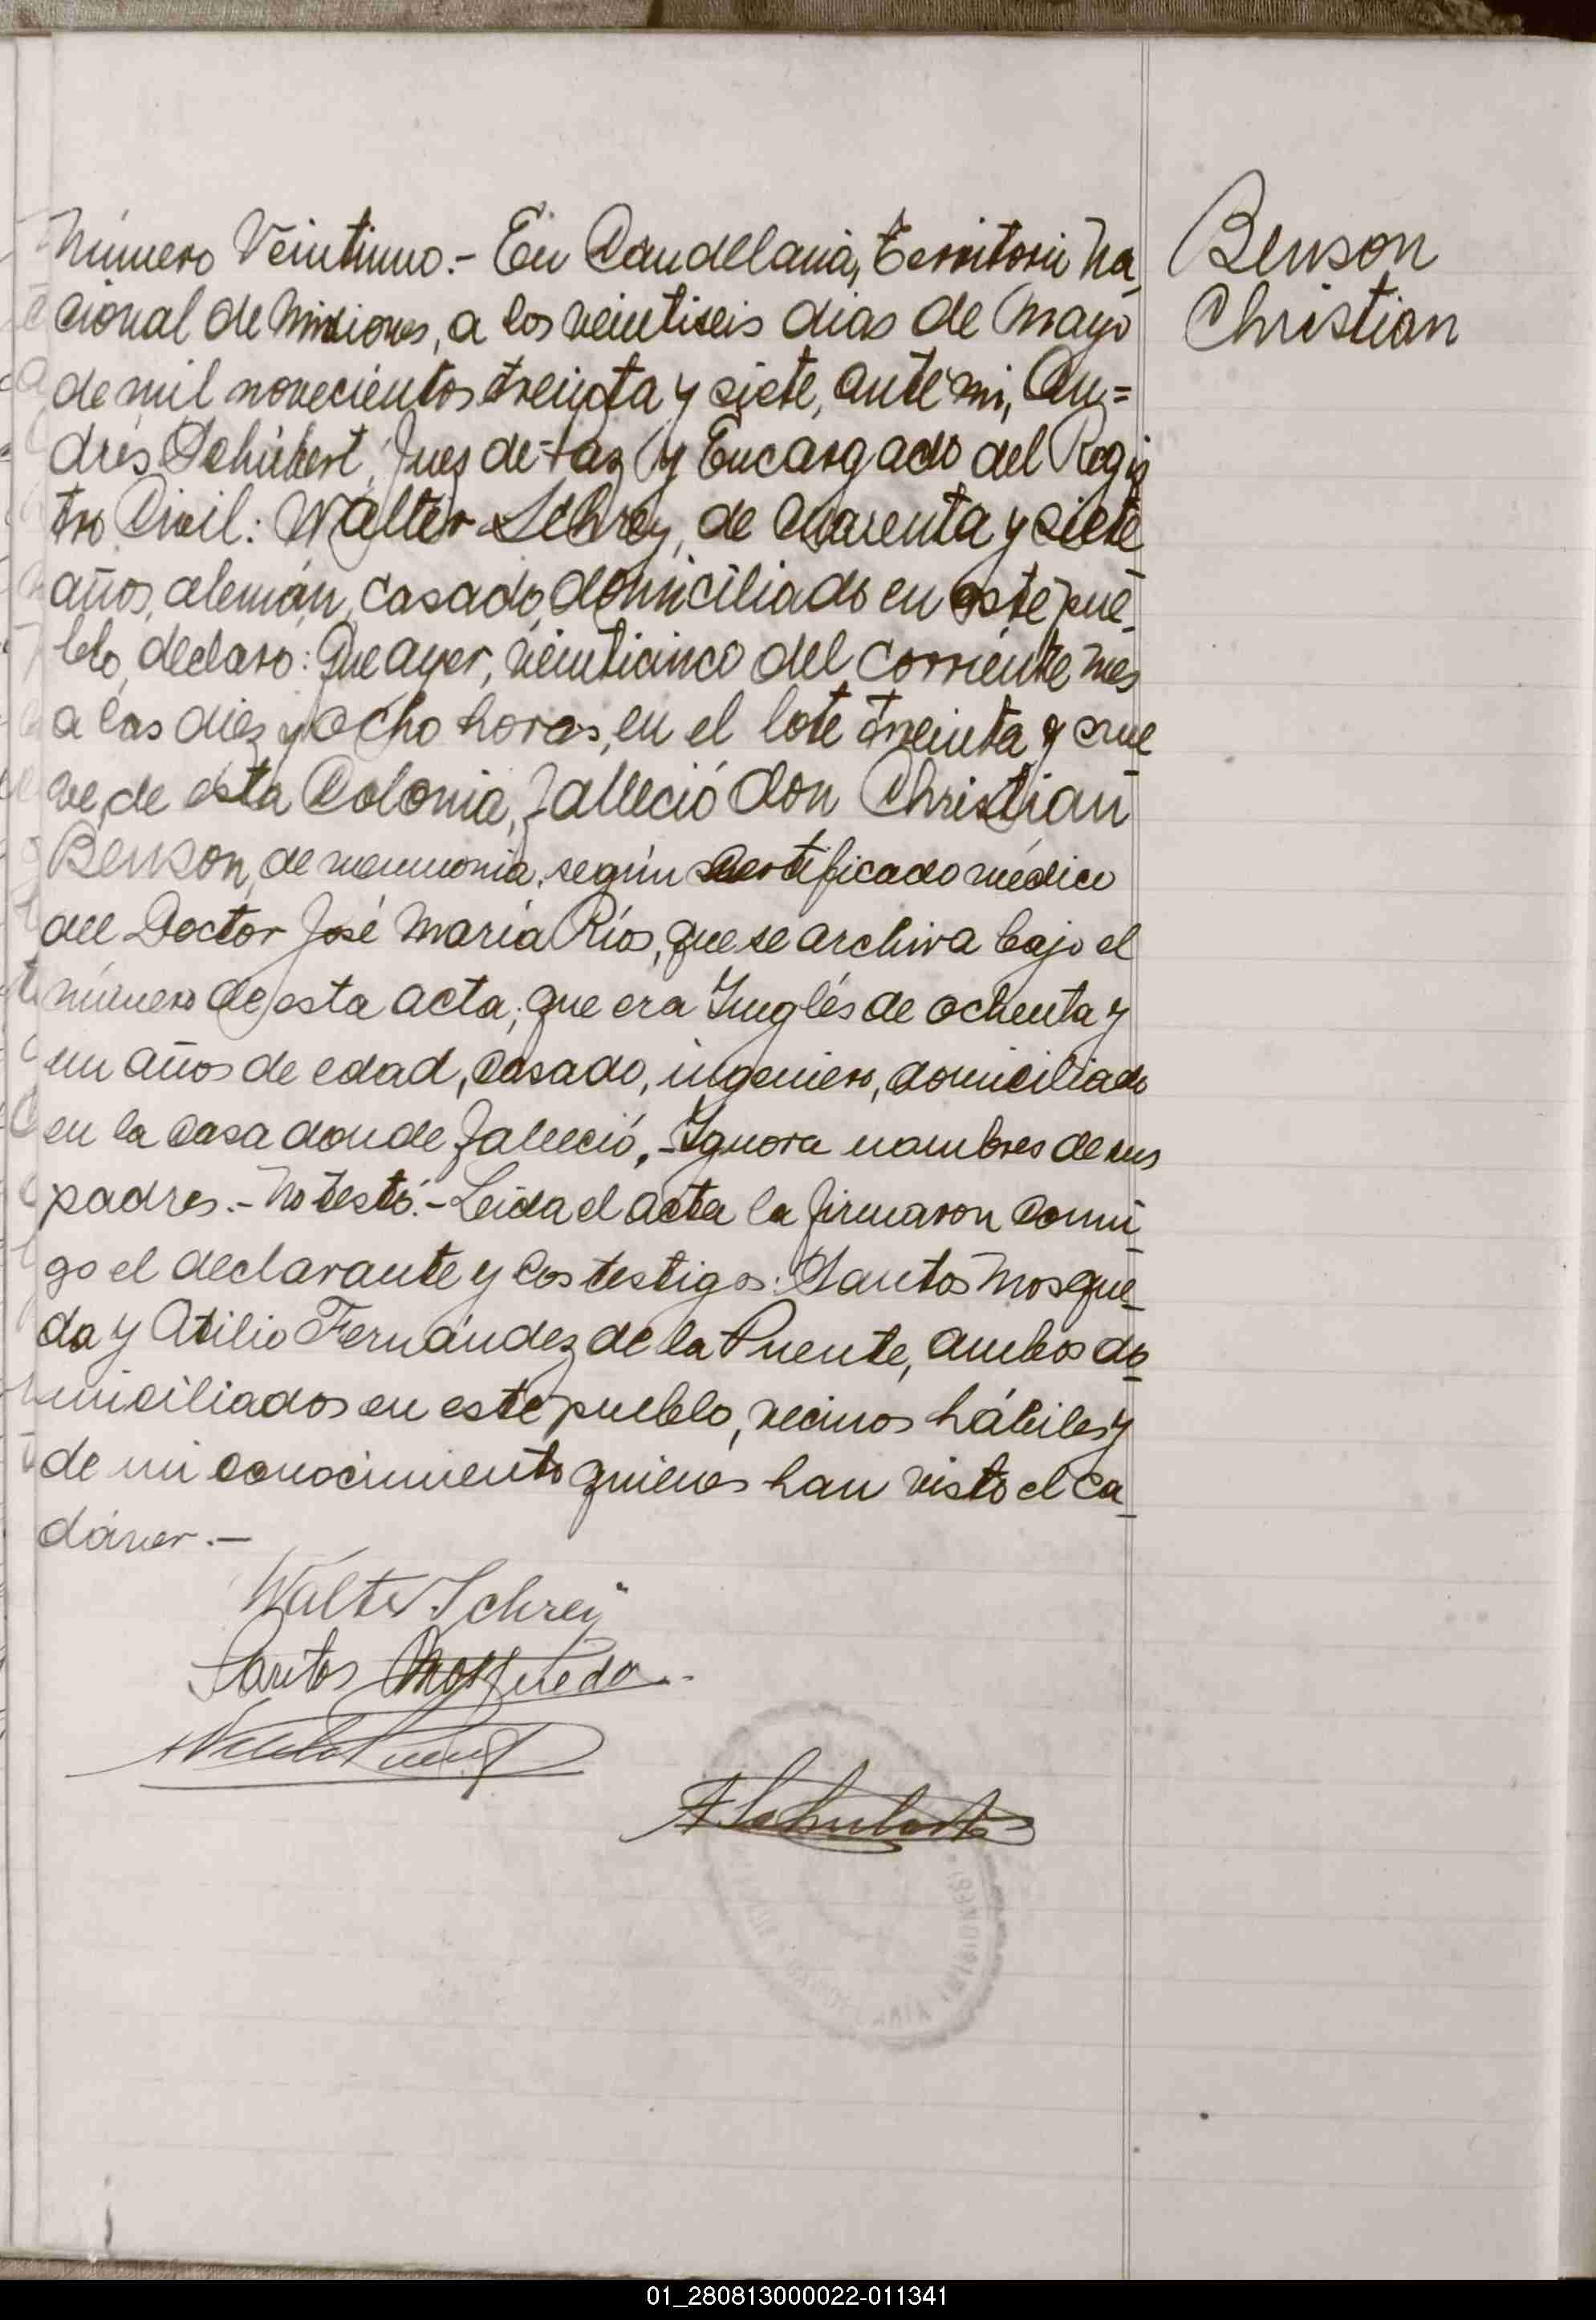 Benson
Christian
Número Veintiuno.- En Candelaria, Territorio Na_
cional de Misiones, a los veintiseis dias de Mayo
de mil novecientos treinta y siete, ante mi, An=
drés Schubert, Juez de Paz y Encargado del Regis
tro Civil: Walter Schrey, de cuarenta y siete
años, alemán, casado, domiciliado en este pue_
blo, declaró: Que ayer, veinticinco del corriente mes
a las diez y ocho horas, en el lote treinta y nue_
ve, de esta Colonia, falleció don Christian
Benson, de neumonia, según certificado médico
del Doctor José María Ríos, que se archiva bajo el
número de esta acta; que era Inglés de ochenta y
un años de edad, casado, ingeniero, domiciliado
en la casa donde falleció.- Ignora nombres de sus
padres.- No testó.- Leída el acta la firmaron conmi_
go el declarante y los testigos: Santos Mosque_
da y Atilio Fernández de la Puente, ambos do_
miciliados en este pueblo, vecinos hábiles y
de mi conocimiento quienes han visto el ca_
dáver.-
Walter Schrey
Santos Mosqueda
A Schubert
01_280813000022-011341